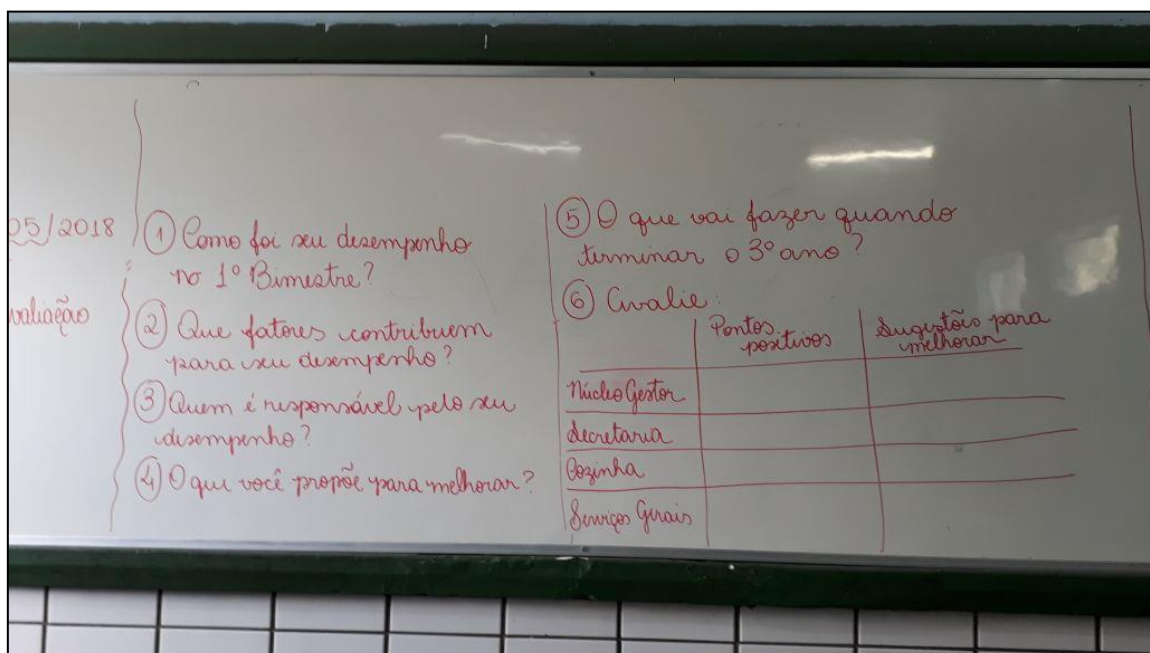 05/2018
valiação
① Como foi seu desempenho
no 1º Bimestre?
② Que fatores contribuem
para seu desempenho?
③ Quem é responsável pelo seu
desempenho?
④ O que você propõe para melhorar?
⑤ O que vai fazer quando
terminar o 3º ano?
⑥ Avalie:
Pontos
positivos
Sugestões para
melhorar
Núcleo Gestor
Secretaria
Cozinha
Serviços Gerais